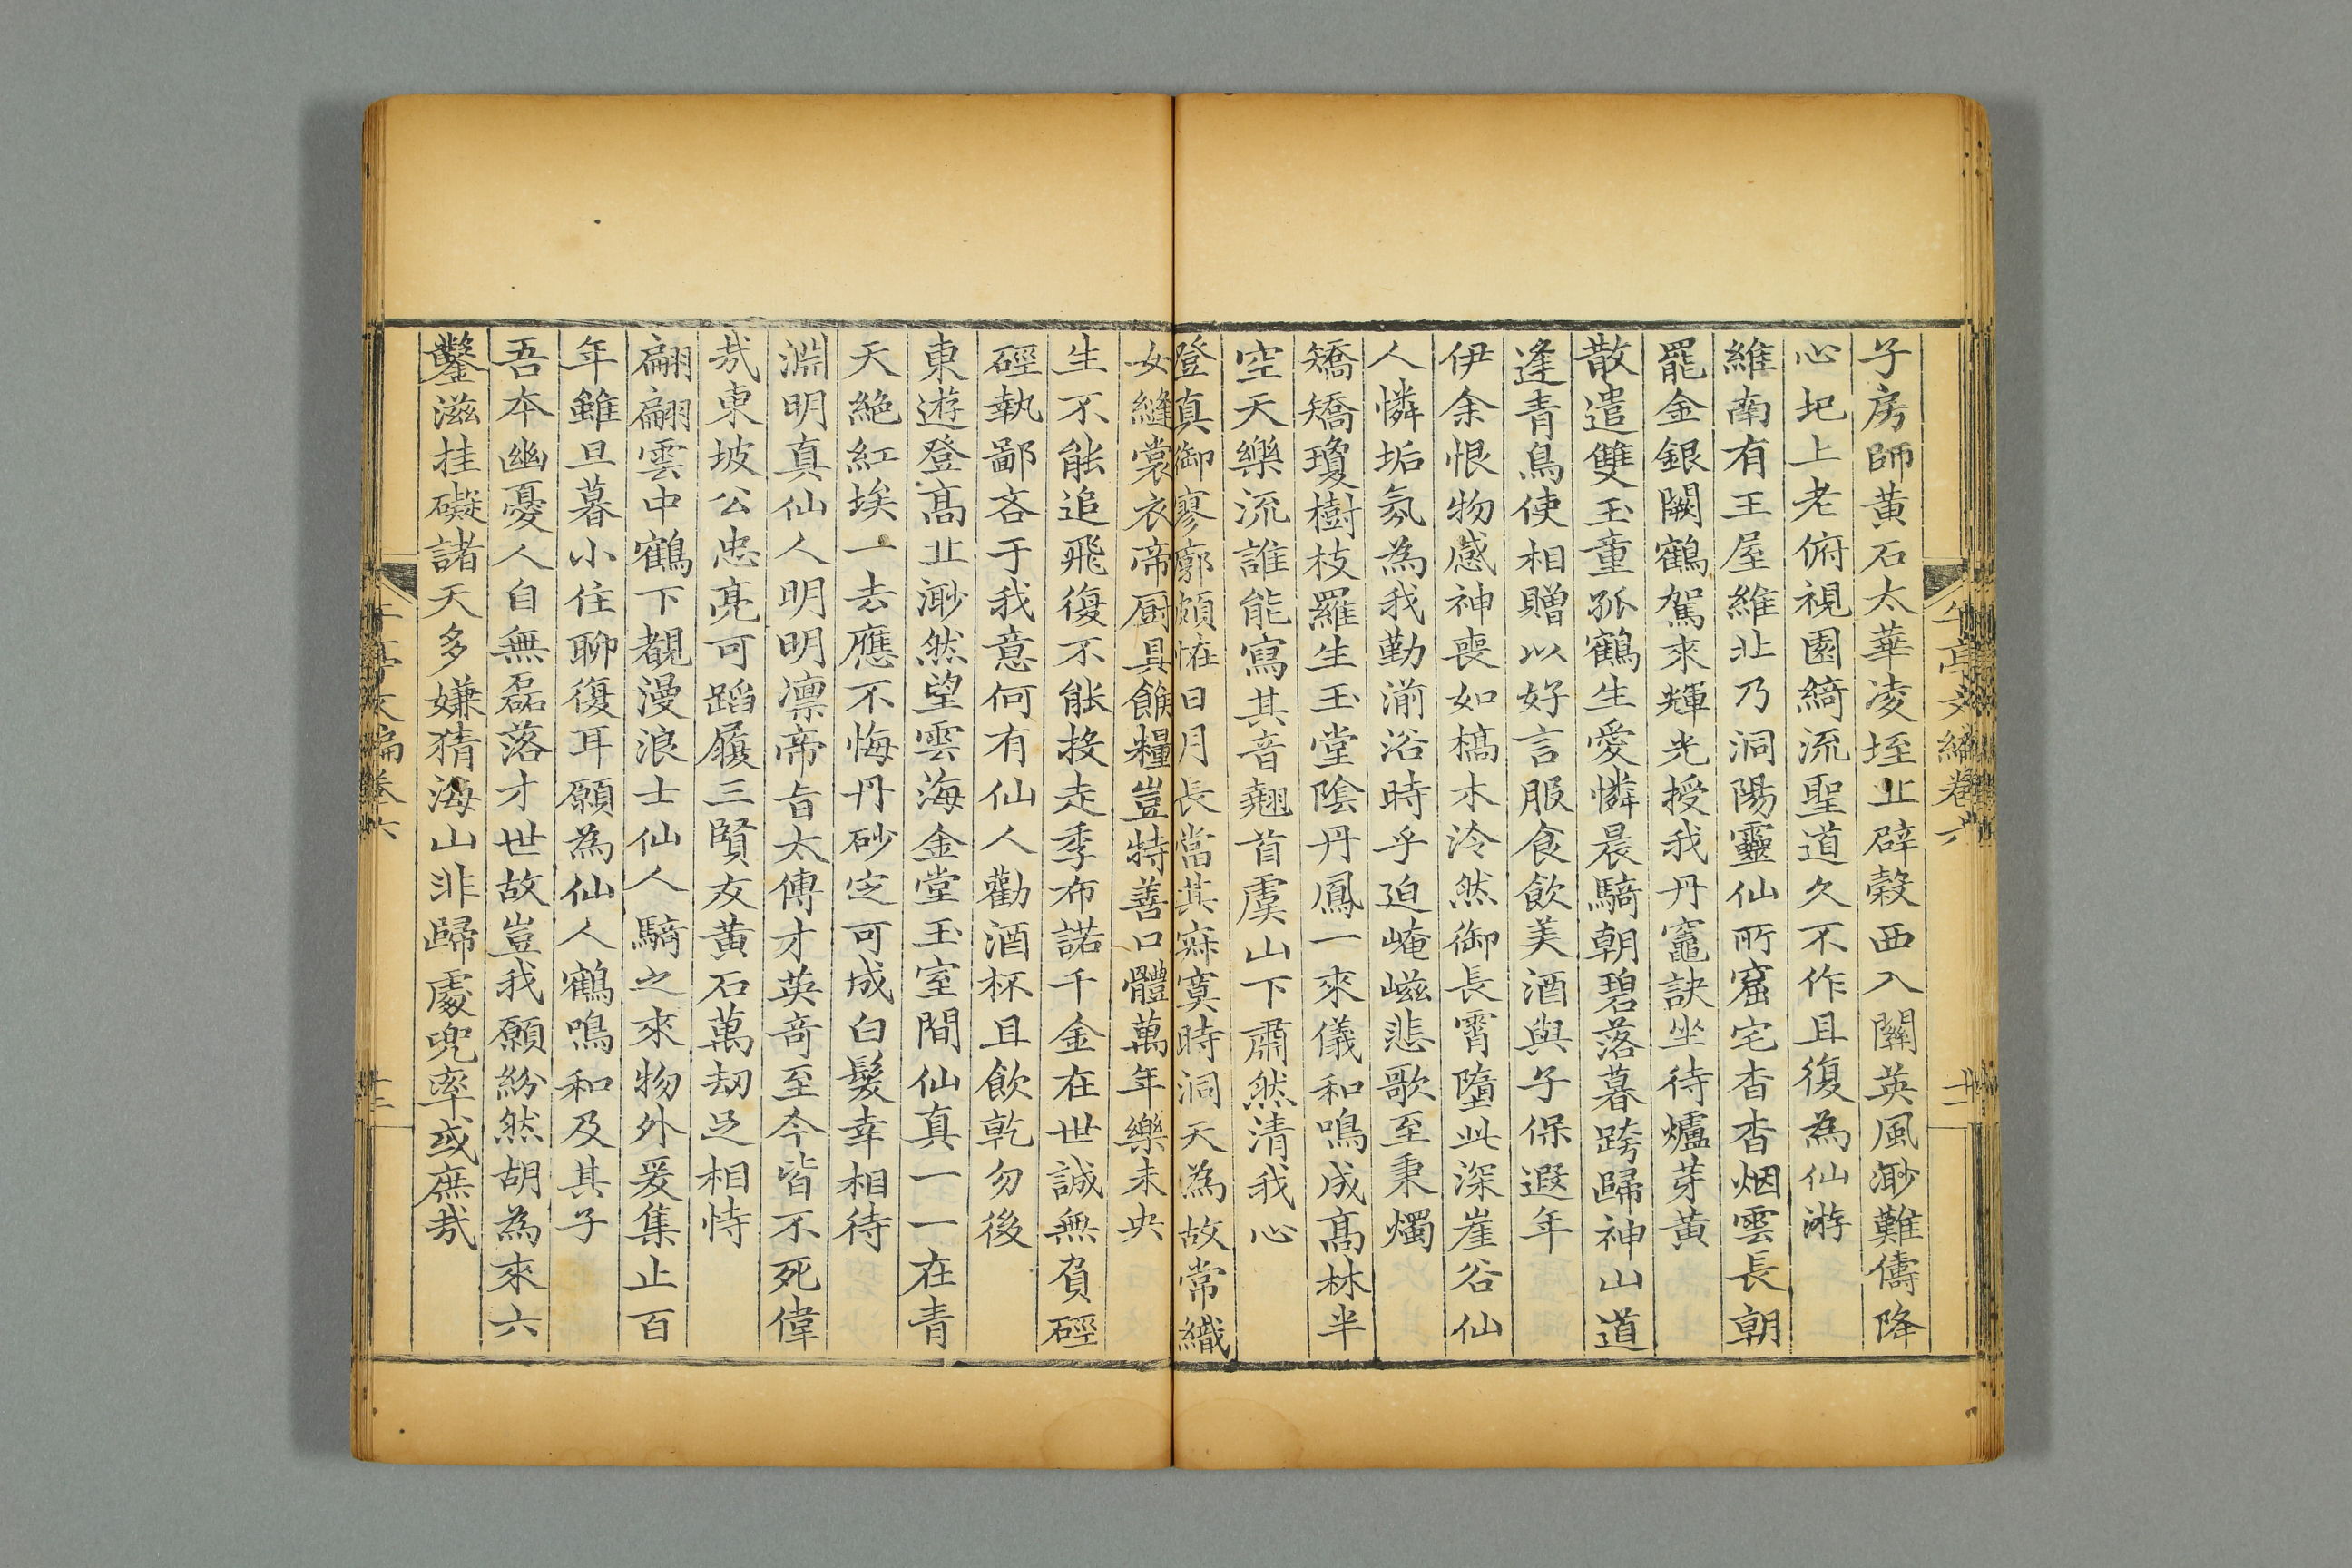 午亭文編卷六
十一
子房師黃石太華凌垤北辟穀西入關英風渺難儔降
心圯上老俯視園綺流聖道久不作且復為仙游
維南有王屋維北乃洞陽靈仙所窟宅杳杳烟雲長朝
罷金銀闕鶴駕來輝光授我丹竈訣坐待爐芽黃
散遣雙玉童孤鶴生愛憐晨騎朝碧落暮跨歸神山道
逢青鳥使相贈以好言服食飲美酒與子保遐年
伊余恨物感神喪如槁木泠然御長霄墮此深崖谷仙
人憐垢氛為我勤湔浴時乎迫崦嵫悲歌至秉燭
矯矯瓊樹枝羅生玉堂陰丹鳳一來儀和鳴成高林半
空天樂流誰能寫其音翹首虞山下肅然清我心
登真御寥廓頗怪日月長當其寂寞時洞天為故常織
女縫裳衣帝厨具餱糧豈特善口體萬年樂未央
生不能追飛復不能投走季布諾千金在世誠無負硜
硜執鄙吝于我意何有仙人勸酒杯且飲乾勿後
東遊登高北渺然望雲海金堂玉室間仙真一一在青
天絕紅埃一去應不悔丹砂定可成白髮幸相待
淵明真仙人明明凛帝旨太傅才英奇至今皆不死偉
哉東坡公忠亮可蹈履三賢友黃石萬刼足相恃
翩翩雲中鶴下覩漫浪士仙人騎之來物外爰集止百
年雖旦暮小住聊復耳願為仙人鶴鳴和及其子
吾本幽憂人自無磊落才世故豈我願紛然胡為來六
鑿滋挂礙諸天多嫌猜海山非歸處兜率或庶哉
午亭文編卷六
十二